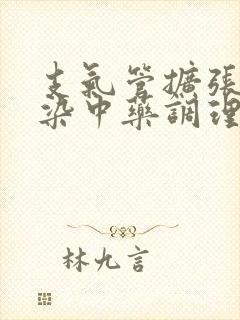 支氣管擴張
染中藥調理
林九言